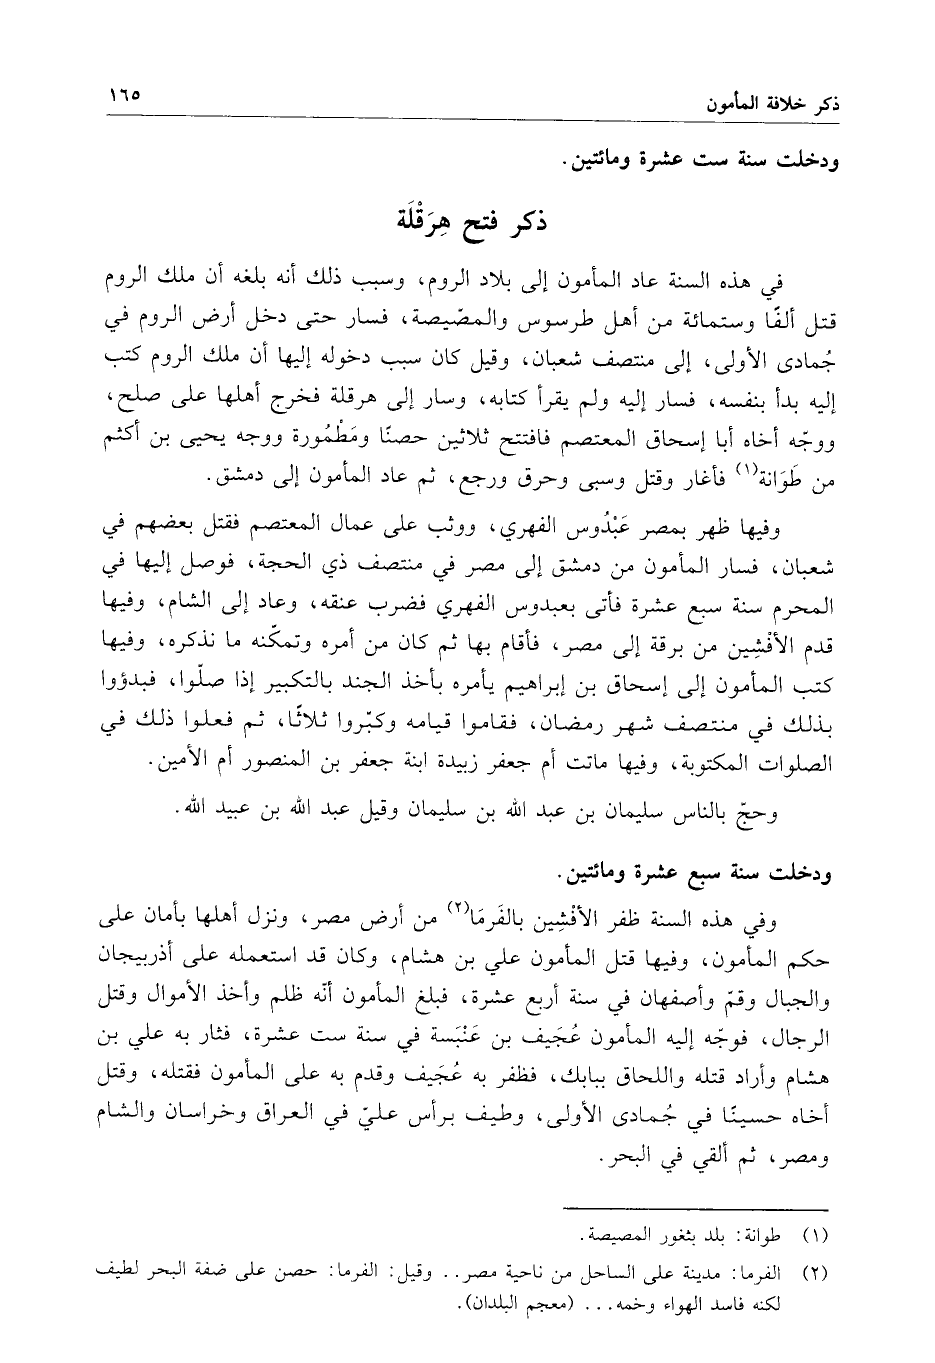 ذكر خلافة المأمون ١٦٥
ودخلت سنة ست عشرة ومائتين.
ذكر فتح هِرَقْلَة
في هذه السنة عاد المأمون إلى بلاد الروم، وسبب ذلك أنه بلغه أن ملك الروم
قتل ألفًا وستمائة من أهل طرسوس والمصّيصة، فسار حتى دخل أرض الروم في
جُمادى الأولى، إلى منتصف شعبان، وقيل كان سبب دخوله إليها أن ملك الروم كتب
إليه بدأ بنفسه، فسار إليه ولم يقرأ كتابه، وسار إلى هرقلة فخرج أهلها على صلح،
ووجّه أخاه أبا إسحاق المعتصم فافتتح ثلاثين حصنًا ومَطْمُورة ووجه يحيى بن أكثم
من طَوَانة(١) فأغار وقتل وسبى وحرق ورجع، ثم عاد المأمون إلى دمشق.
وفيها ظهر بمصر عَبْدُوس الفهري، ووثب على عمال المعتصم فقتل بعضهم في
شعبان، فسار المأمون من دمشق إلى مصر في منتصف ذي الحجة، فوصل إليها في
المحرم سنة سبع عشرة فأتى بعبدوس الفهري فضرب عنقه، وعاد إلى الشام، وفيها
قدم الأفْشِين من برقة إلى مصر، فأقام بها ثم كان من أمره وتمكّنه ما نذكره، وفيها
كتب المأمون إلى إسحاق بن إبراهيم يأمره بأخذ الجند بالتكبير إذا صلّوا، فبدؤوا
بذلك في منتصف شهر رمضان، فقاموا قيامه وكبّروا ثلاثًا، ثم فعلوا ذلك في
الصلوات المكتوبة، وفيها ماتت أم جعفر زبيدة ابنة جعفر بن المنصور أم الأمين.
وحجّ بالناس سليمان بن عبد الله بن سليمان وقيل عبد الله بن عبيد الله.
ودخلت سنة سبع عشرة ومائتين.
وفي هذه السنة ظفر الأفْشِين بالفَرمَا(٢) من أرض مصر، ونزل أهلها بأمان على
حكم المأمون، وفيها قتل المأمون علي بن هشام، وكان قد استعمله على أذربيجان
والجبال وقمّ وأصفهان في سنة أربع عشرة، فبلغ المأمون أنّه ظلم وأخذ الأموال وقتل
الرجال، فوجّه إليه المأمون عُجَيف بن عَنْبَسة في سنة ست عشرة، فثار به علي بن
هشام وأراد قتله واللحاق ببابك، فظفر به عُجَيف وقدم به على المأمون فقتله، وقتل
أخاه حسينًا في جُمادى الأولى، وطيف برأس عليّ في العراق وخراسان والشام
ومصر، ثم ألقي في البحر.
(١) طوانة: بلد بثغور المصيصة.
(٢) الفرما: مدينة على الساحل من ناحية مصر.. وقيل: الفرما: حصن على ضفة البحر لطيف
لكنه فاسد الهواء وخمه... (معجم البلدان).